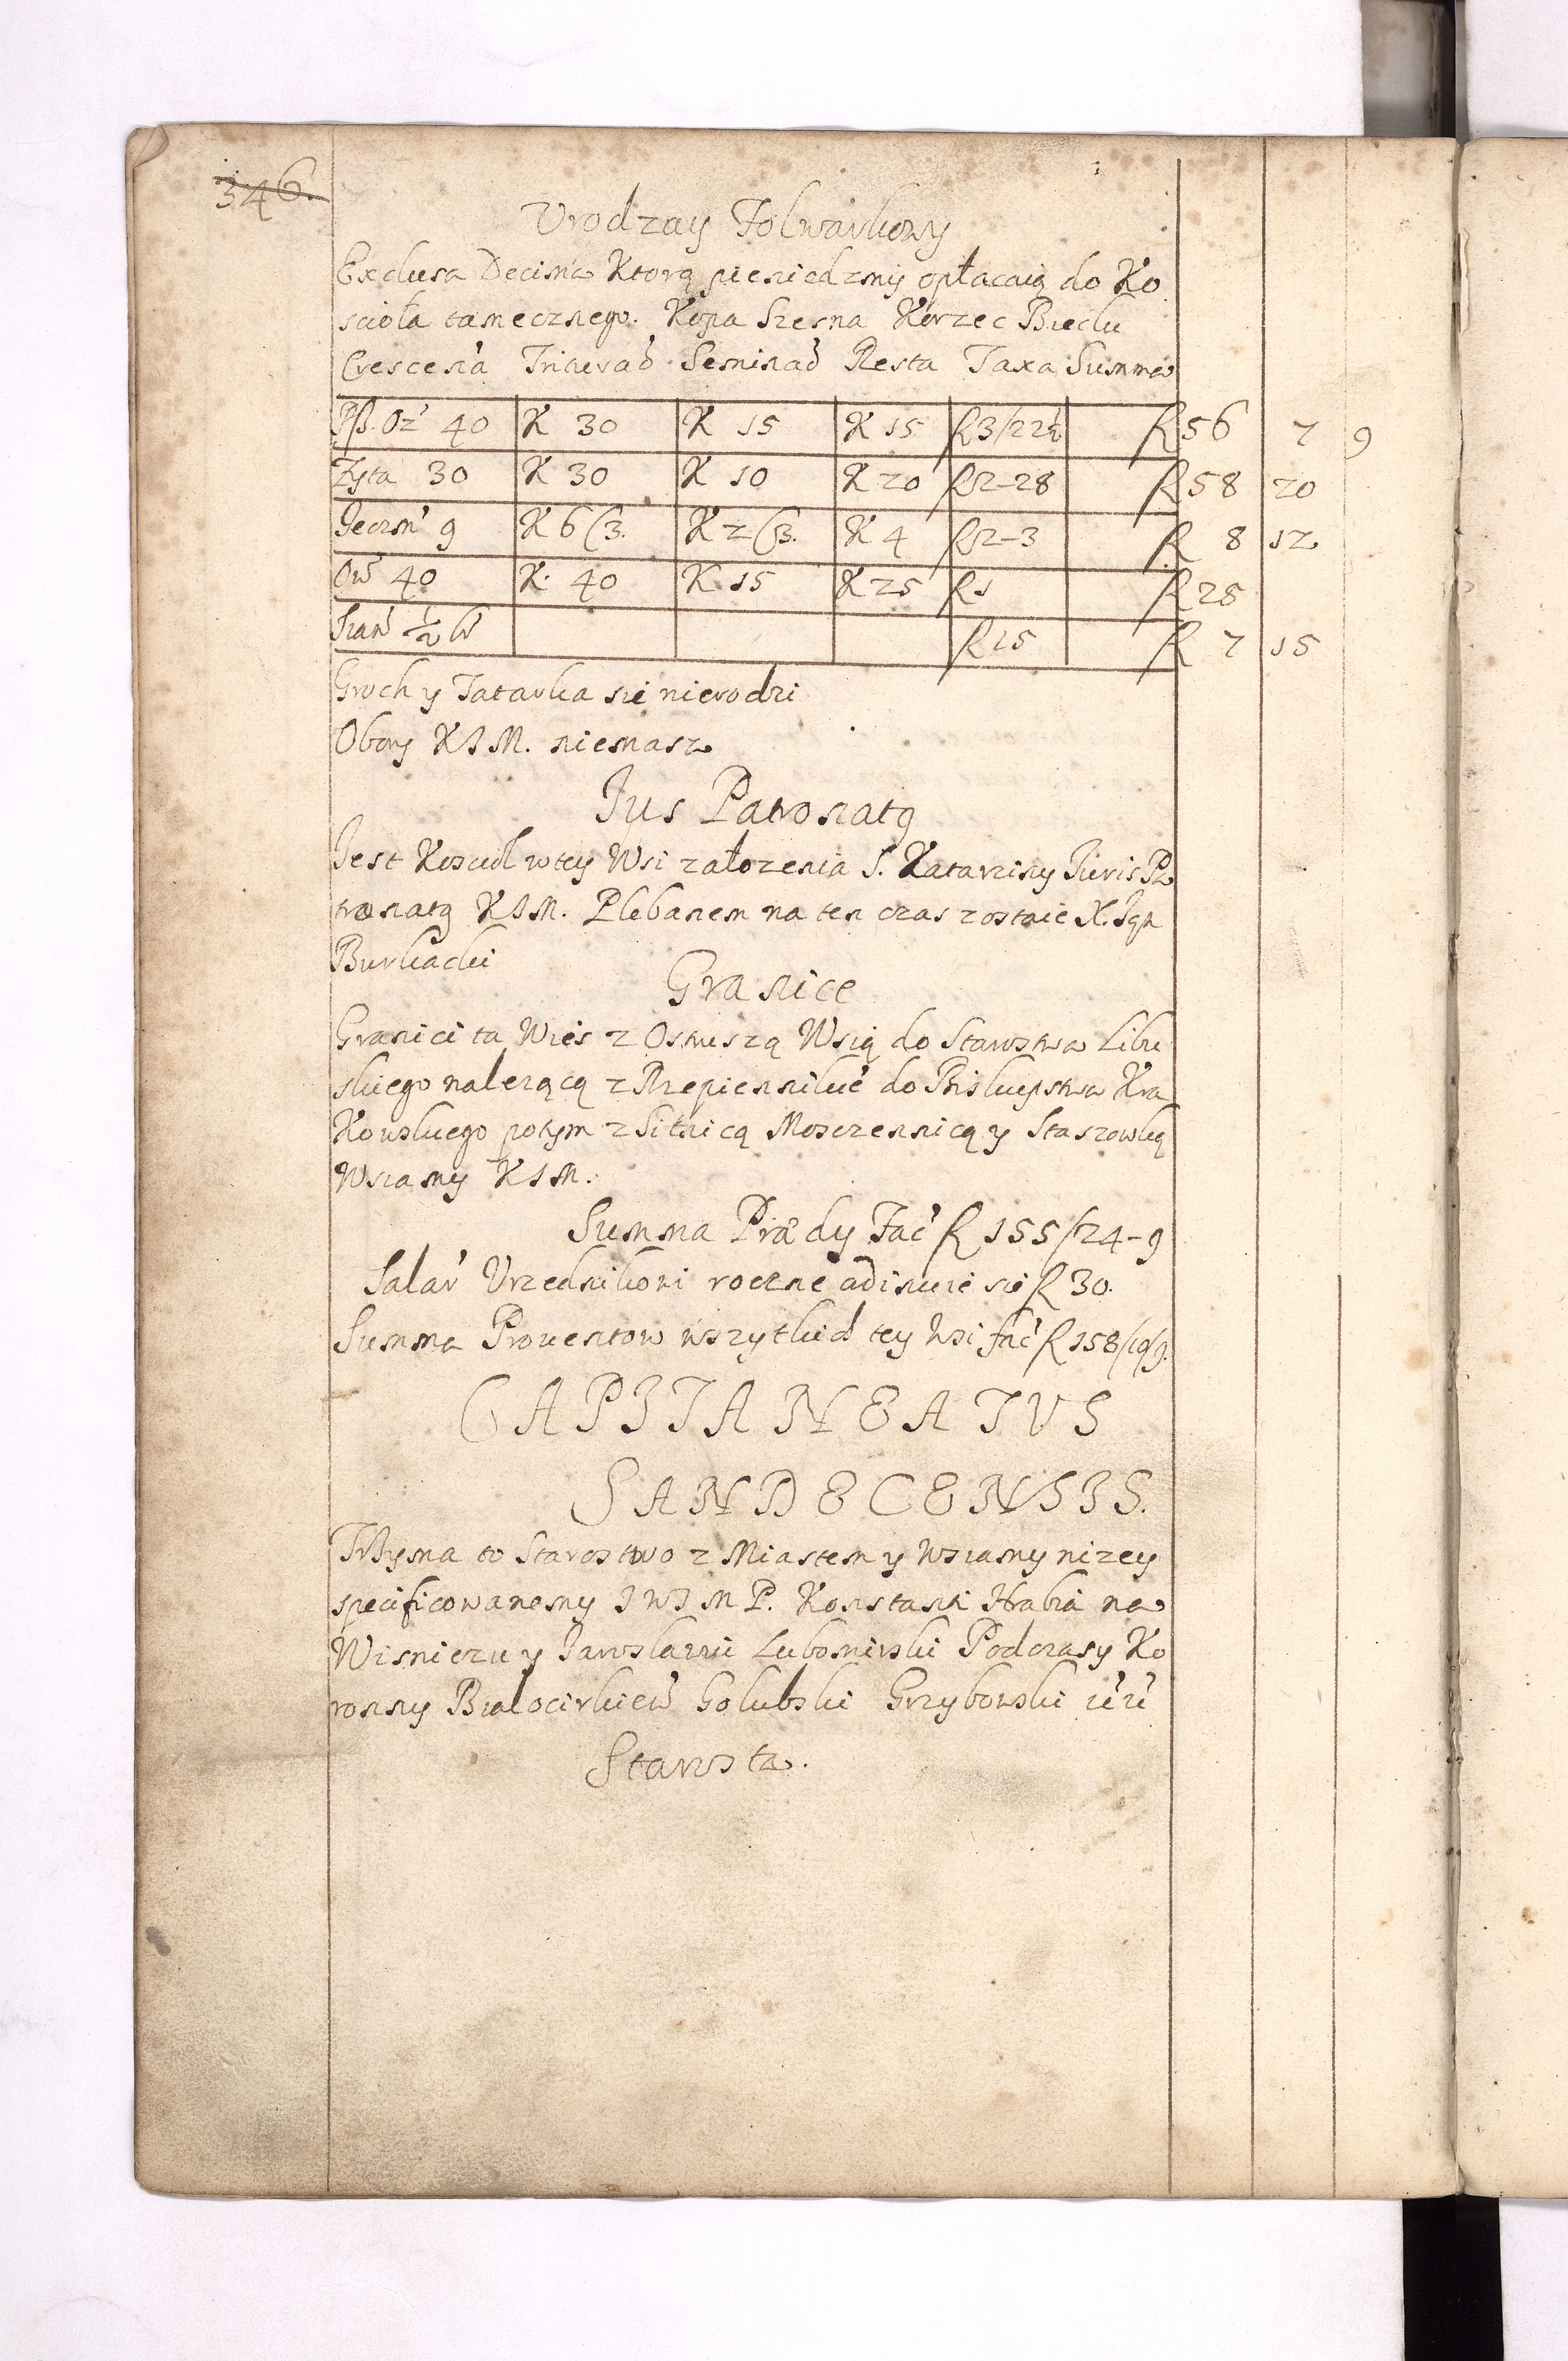 346.
Urodzay Folwarkowy
Exclusa Decima Ktorą pieniędzmy opłacaią do Ko
scioła tamecznego. Kopa Szesna Korzec Biecki
Crescen'a Triturao Seminao Resta Taxa Summa
Psz. Oz' 40 K 30 K 15 K 15 R3/22½ R56 7 9
Zyta 30 K 30 K 10 K 20 R2-28 R58 20
Jeczm' 9 K 6 (3. K 2 (3. K 4 R2-3 R 8 12
Ow' 40 K. 40 K 15 K 25 R1 R25
Sian' ½ b' R15 R 7 15
Groch y Tatarka sie nierodzi
Obory KIM. niemasz
Jus Patronatg
Jest Kosciol wtey Wsi załozenia S. Katarziny Juris Pa
tronatg KIM. Plebanem na ten czas zostaie X. Jgn
Burkacki
Granice
Granici ta Wies z Ostruszą Wsią do Starostwa Libu
skiego nalezącą z Rzepiennikie' do Biskupstwa Kra
Kowskiego potym z Sitnicą Moszczennicą y Staszowką
Wsiamy KIM.
Summa Prædy Fac' R 155/24-9
Salar' Urzednikowi roczne adimuie sie R 30.
Summa Prouentow wszytkich tey Wsi fac' R 158/19/9.
CAPITANEATUS
SANDECENSIS.
Trzyma to Starostwo z Miastem y Wsiamy nizey
specificowanemy JWJMP. Konstanti Hrabia na
Wisniczu y Jaroslawiu Lubomirski Podczasy Ko
ronny Bialocirkiew' Golubski Grzybowski &c &c
Starosta.